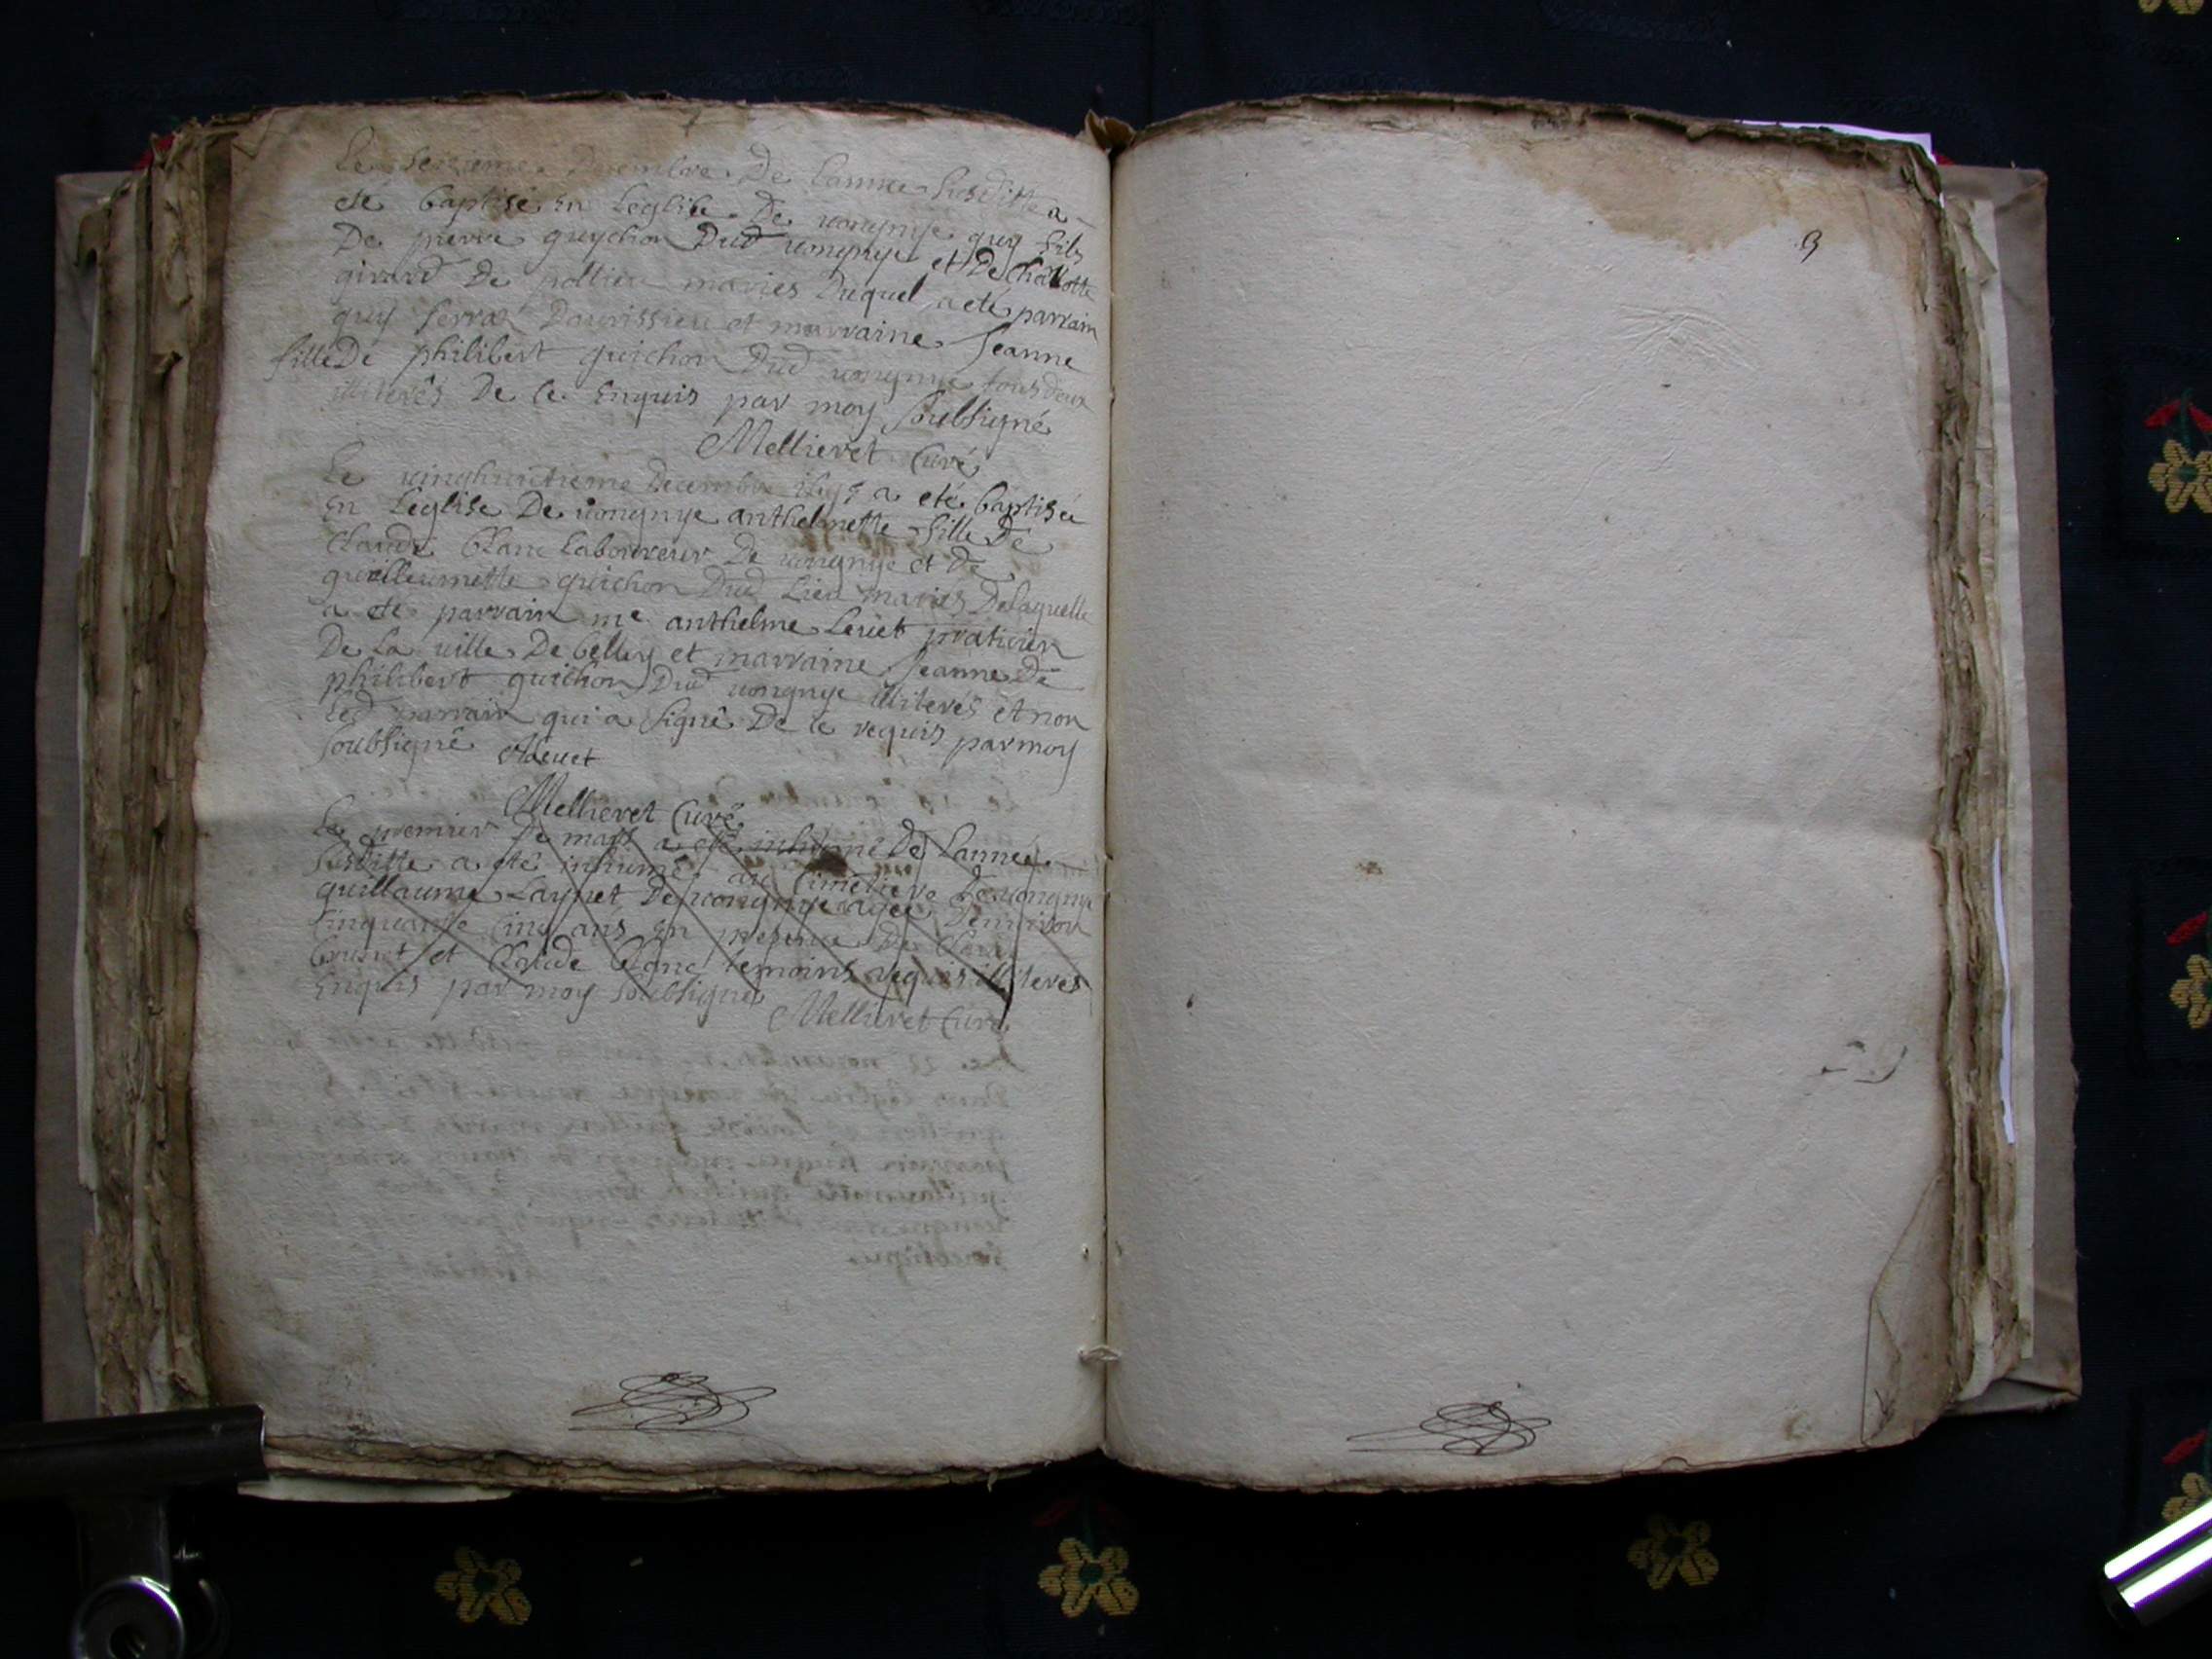 Le seizieme Decembre De lannee susditte a
eté baptisé en leglise De vongnye guy fils
De pierre guychon Dud vongnye et De Charlotte
girard De pollieu mariés Duquel a eté parrain
guy serraz Daurissieu et marraine Jeanne
fille De philibert guichon Dud vongnye tous deux
illiterés De ce Enquis par moy soubsigné
Mellieret Curé
Le vinghuictieme Decembre a eté baptisée
En Leglise De vongnye anthelmette fille De
Claude blanc laboureur De vongnye et De
guillaumette guichon Dud Lieu mariés De laquelle
a eté parrain me anthelme Levet praticien
De la ville De belley et marraine Jeanne De
philibert guichon Dud vongnye illiterés et non
led parrain qui a signé De ce requis par moy
soubsigné ALevet
Mellieret Curé
Le premier De mars a eté inhumé De Lannee
susditte a eté inhumé au Cimetiere De vongnye
guillaume Laynet De vongnye agee Denviron
Cinquante Cinq ans En presence De Claude
brunet et Claude blanc temoins requis illiterés
Enquis par moy soubsigné
Mellieret Curé
9